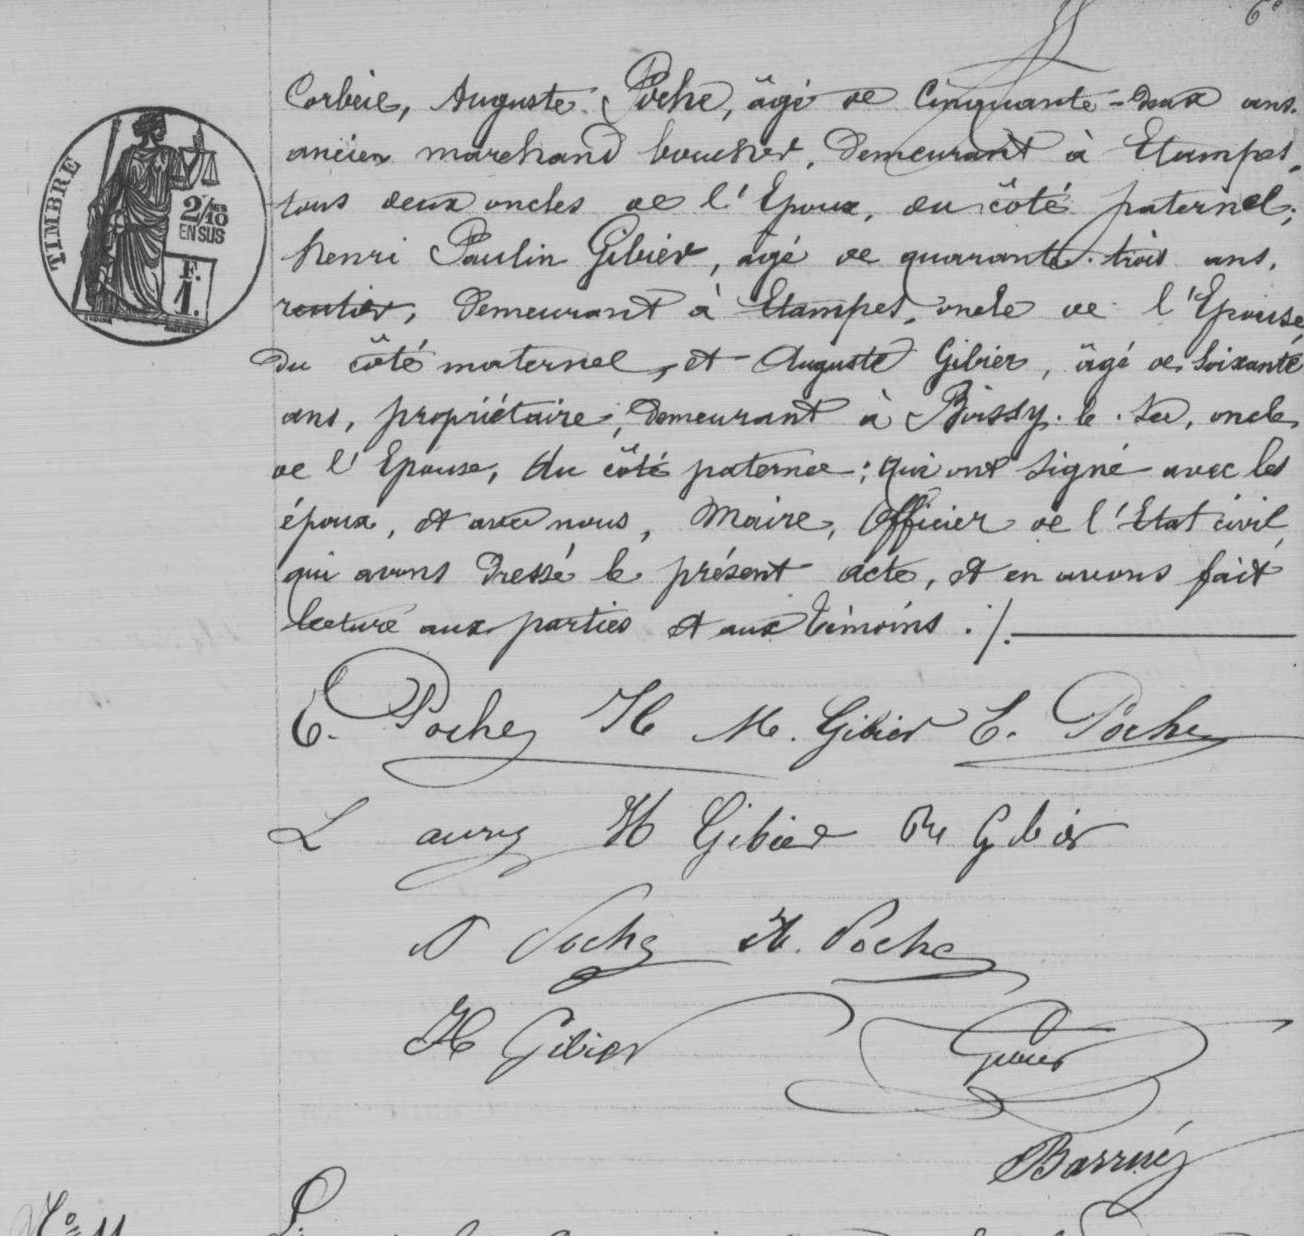 6e
Corbeil, Auguste Poche, âgé de Cinquante-deux ans.
ancien marchand boucher, demeurant à Etampes,
tous deux oncles de l'Epoux, du côté paternel;
henri Paulin Gibier, âgé de quarante-trois ans,
rentier, demeurant à Etampes, oncle de l'Epouse,
du côté maternel, et Auguste Gibier, âgé de Soixante
ans, propriétaire, demeurant à Boissy-le-Sec, oncle
de l'Epouse, du côté paternel; qui ont Signé avec les
époux, et avec nous, Maire, Officier de l'Etat civil,
qui avons dressé le présent acte, et en avons fait
lecture aux parties et aux témoins ./.
TIMBRE
2/10 MES
EN SUS
F.
1.
E. Poche H M. Gibier E. Poche
L aury H Gibier Gibier
Poche A. Poche
H Gibier Gibier
No 11